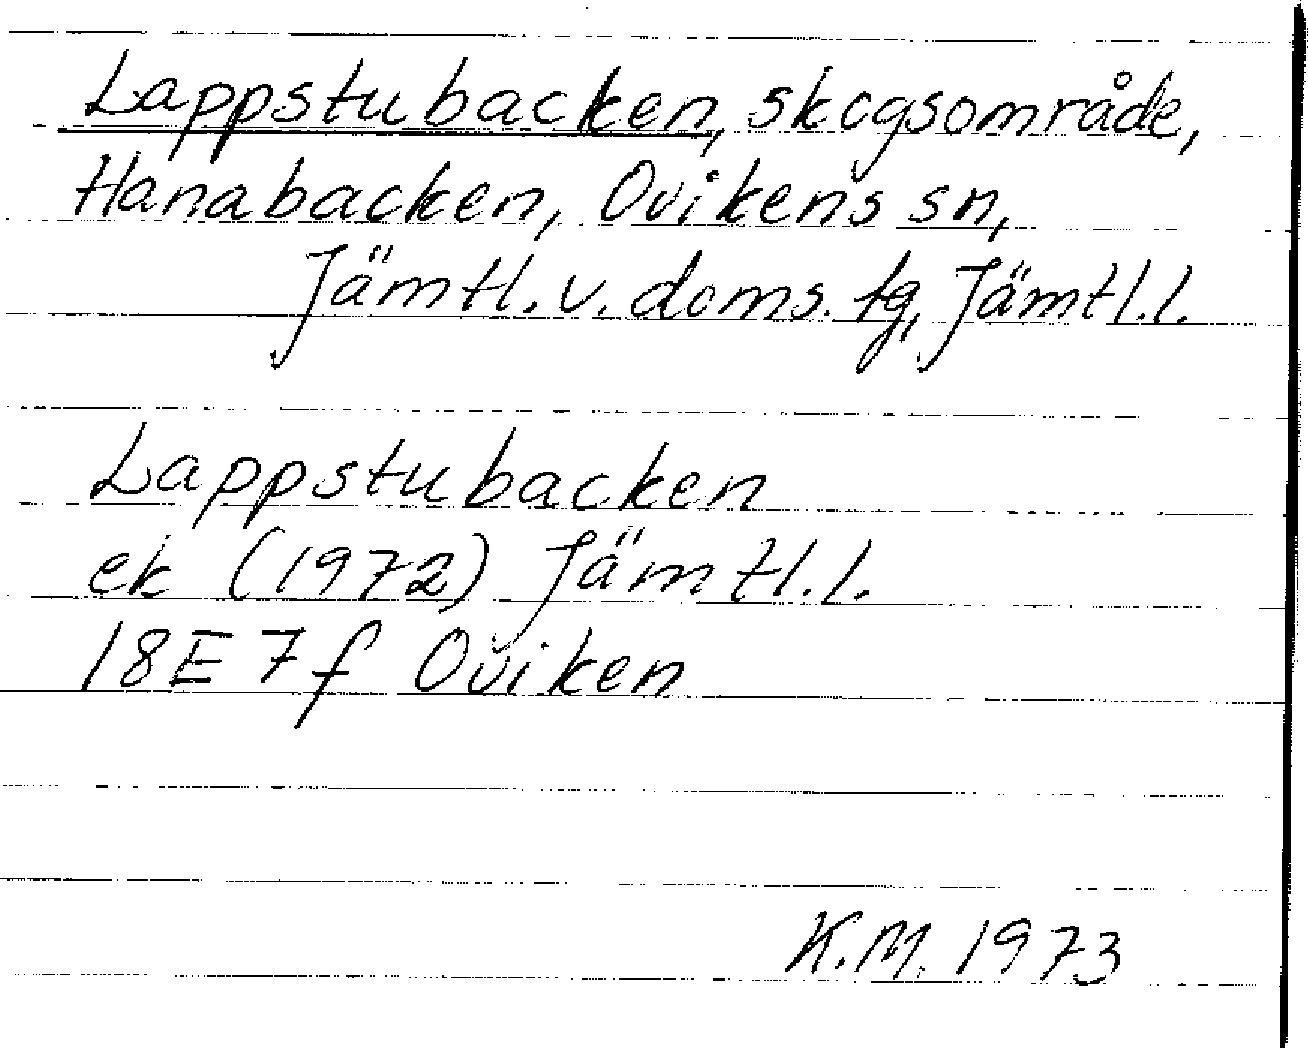 Lappstubacken, skogsområde,
Hanabacken, Ovikens sn,
Jämtl. v. doms. tg, Jämtl. l.
Lappstubacken
ek (1972) Jämtl. l.
18E 7f Oviken
K.M. 1973